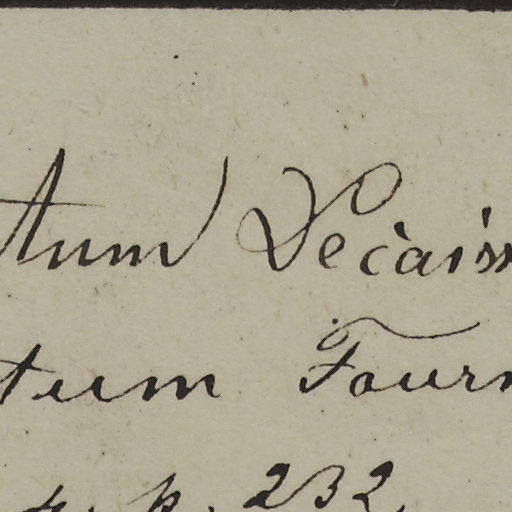 tum) Decaisn
tum Fourn
4. p. 232